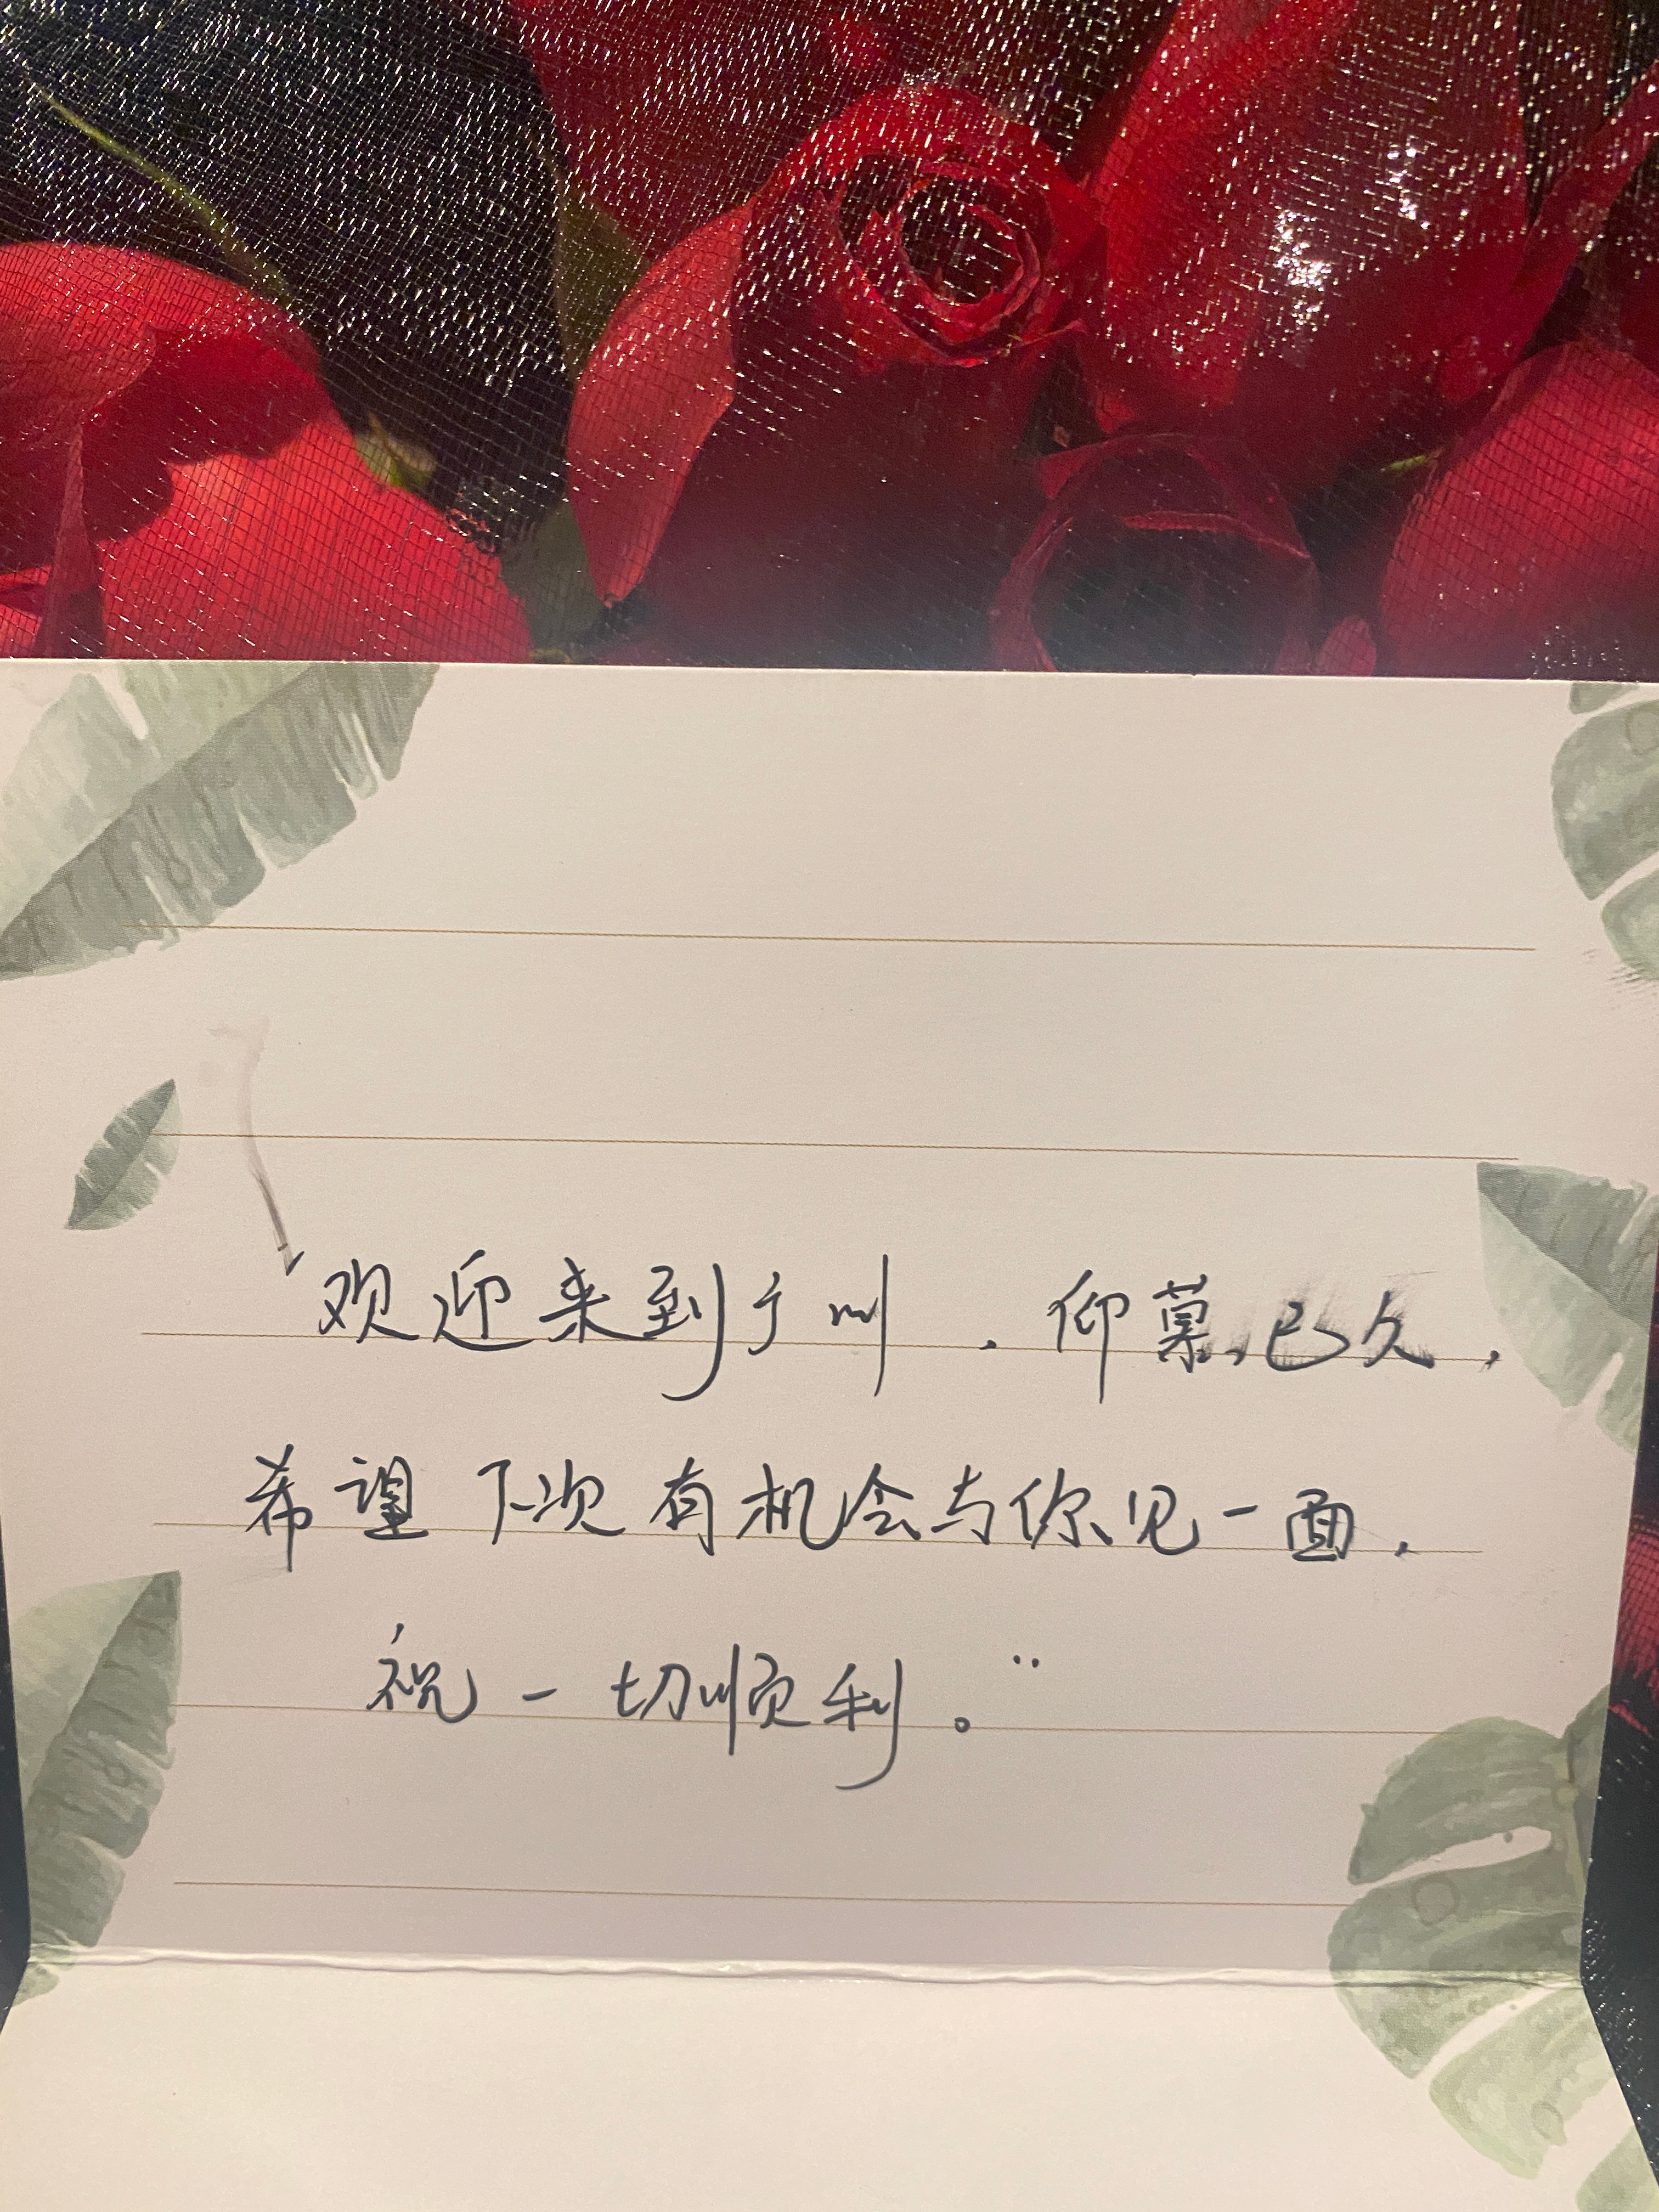 "欢迎来到广州,仰慕已久,
希望下次有机会与你见一面,
祝一切顺利。"